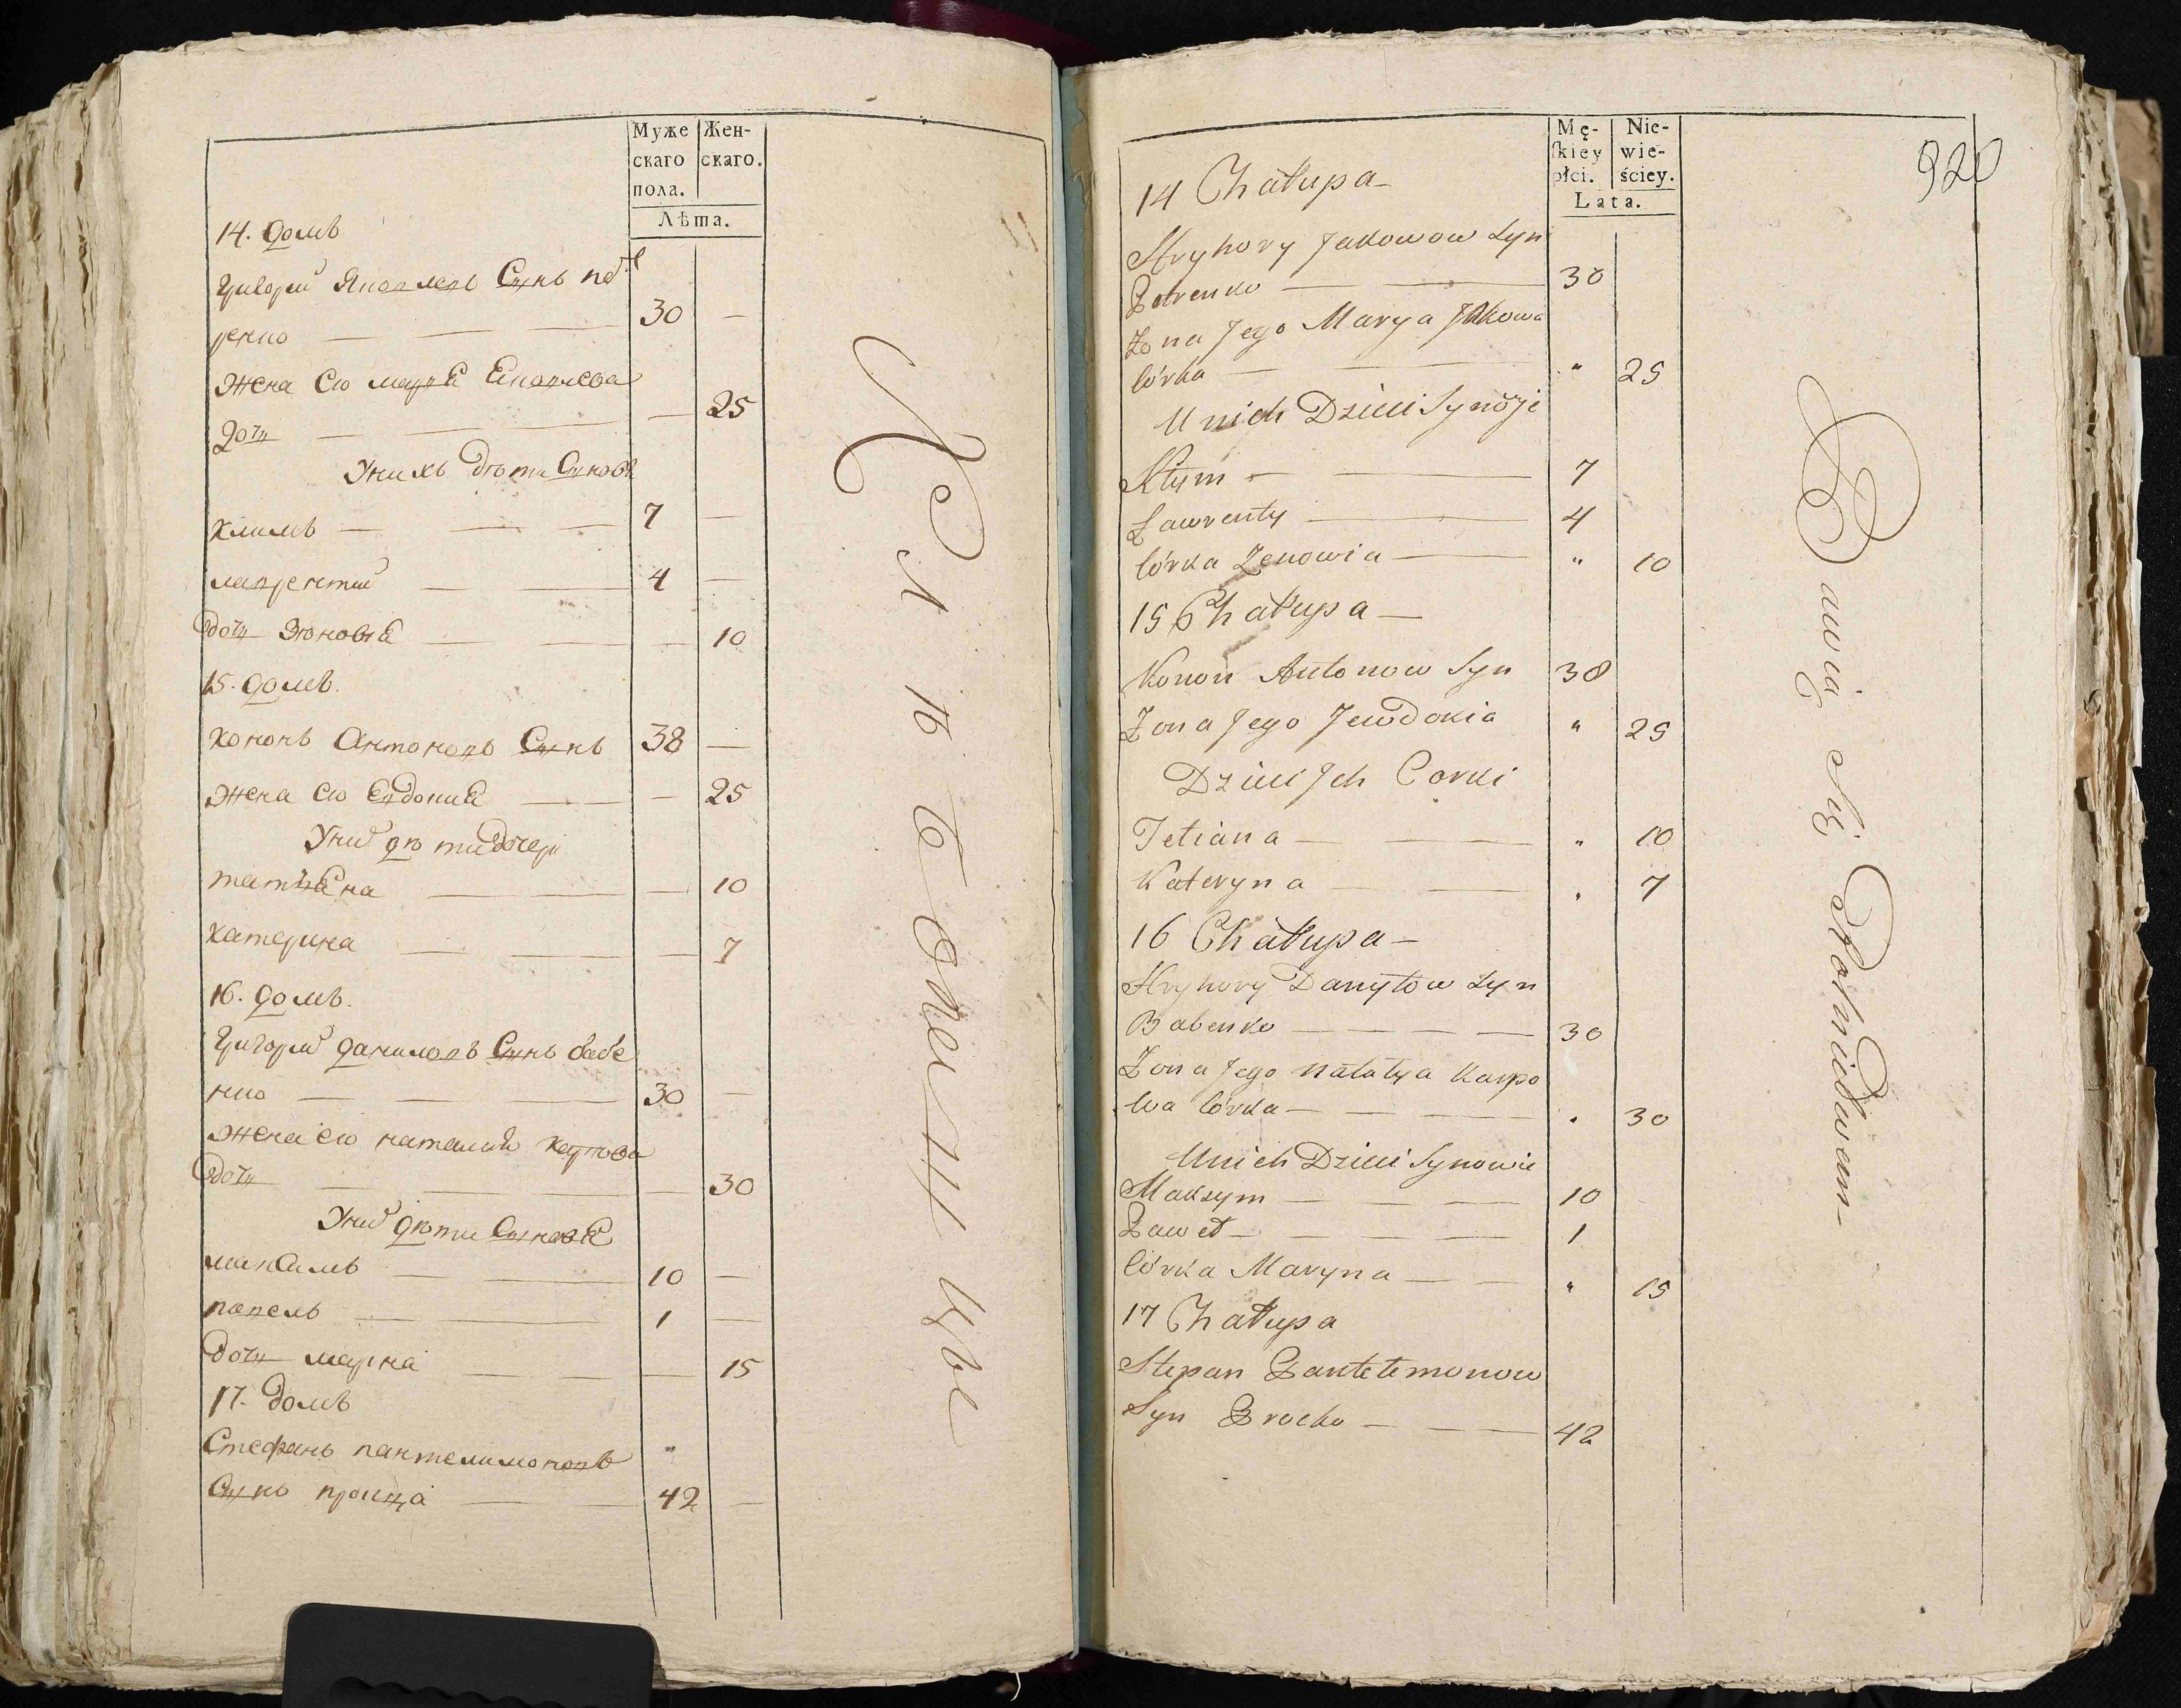 Муже
скаго
пола.
Жен-
скаго.
Лѣта.
14. домъ
Григорій Яковлевъ Сынъ пет
ренко — — — 30 —
Жена его марія Яковлева
дочь — — — — 25
У нихъ дѣти Сыновя
климъ — — — 7 —
лаврентий — — 4 —
дочь Зѣновія — — — 10
15. домъ.
кононъ Антоновъ Сынъ 38 —
жена его Евдокия — — — 25
У них дѣти дочери
татияна — — — 10
катерина — — — 7
16. домъ.
Григорий даниловъ Сынъ бабе
нко — — — 30 —
жена его наталия карпова
дочь — — — — 30
У них дѣти Сыновя
максимъ — — 10 —
павелъ — — 1 —
дочь марина — — — 15
17. домъ
Стефанъ пантелимоновъ "
Сынъ — 42 —
920
Mę-
skiey
płci.
Nie-
wie-
ściey.
Lata.
14 Chałupa —
Hryhory Jakowow Syn
Petrenko — — 30
Żona Jego Marya Jakowa
Córka — — — " 25
U nich Dzieci Synowie
Klym — — 7
Lawrenty — 4
Córka Zenowia — " 10
15 Chałupa —
Konon Antonow Syn 38
Żona Jego Jewdokia " 25
Dzieci Ich Corki
Tetiana — — — " 10
Kateryna — — " 7
16 Chałupa —
Hryhory Danyłow Syn
Babenko — — — — 30
Żona Jego Natalya Karpo
wa Córka — — — " 30
U nich Dzieci Synowie
Maksym — — — 10
Paweł — — — — 1
Córka Maryna — — " 15
17 Chałupa
Stepan Pantelemonow
Syn — — — 42
Bawią się Rolnictwem